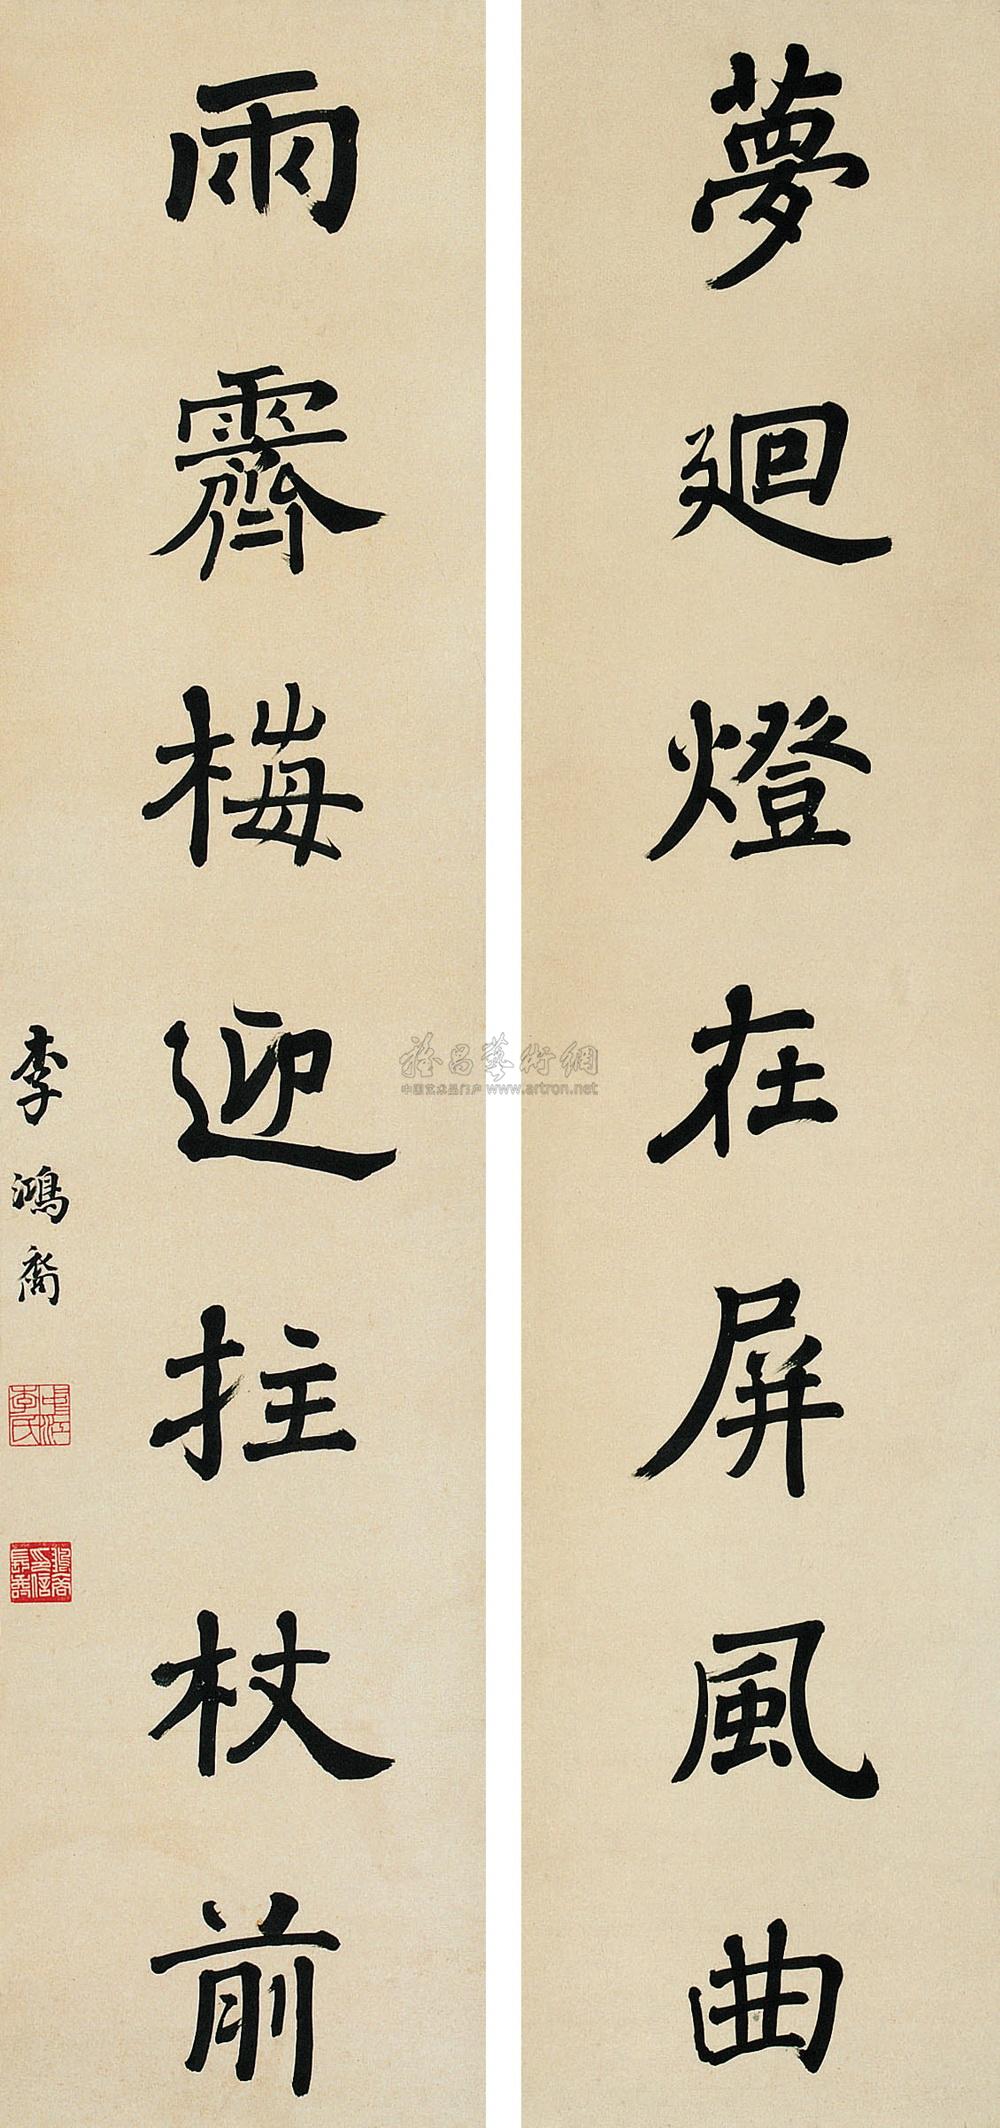 夢廻燈在屏風曲
雨霽梅迎拄杖前
李鴻裔
中江李氏
雅昌藝術網
中国艺术品门户 www.artron.net